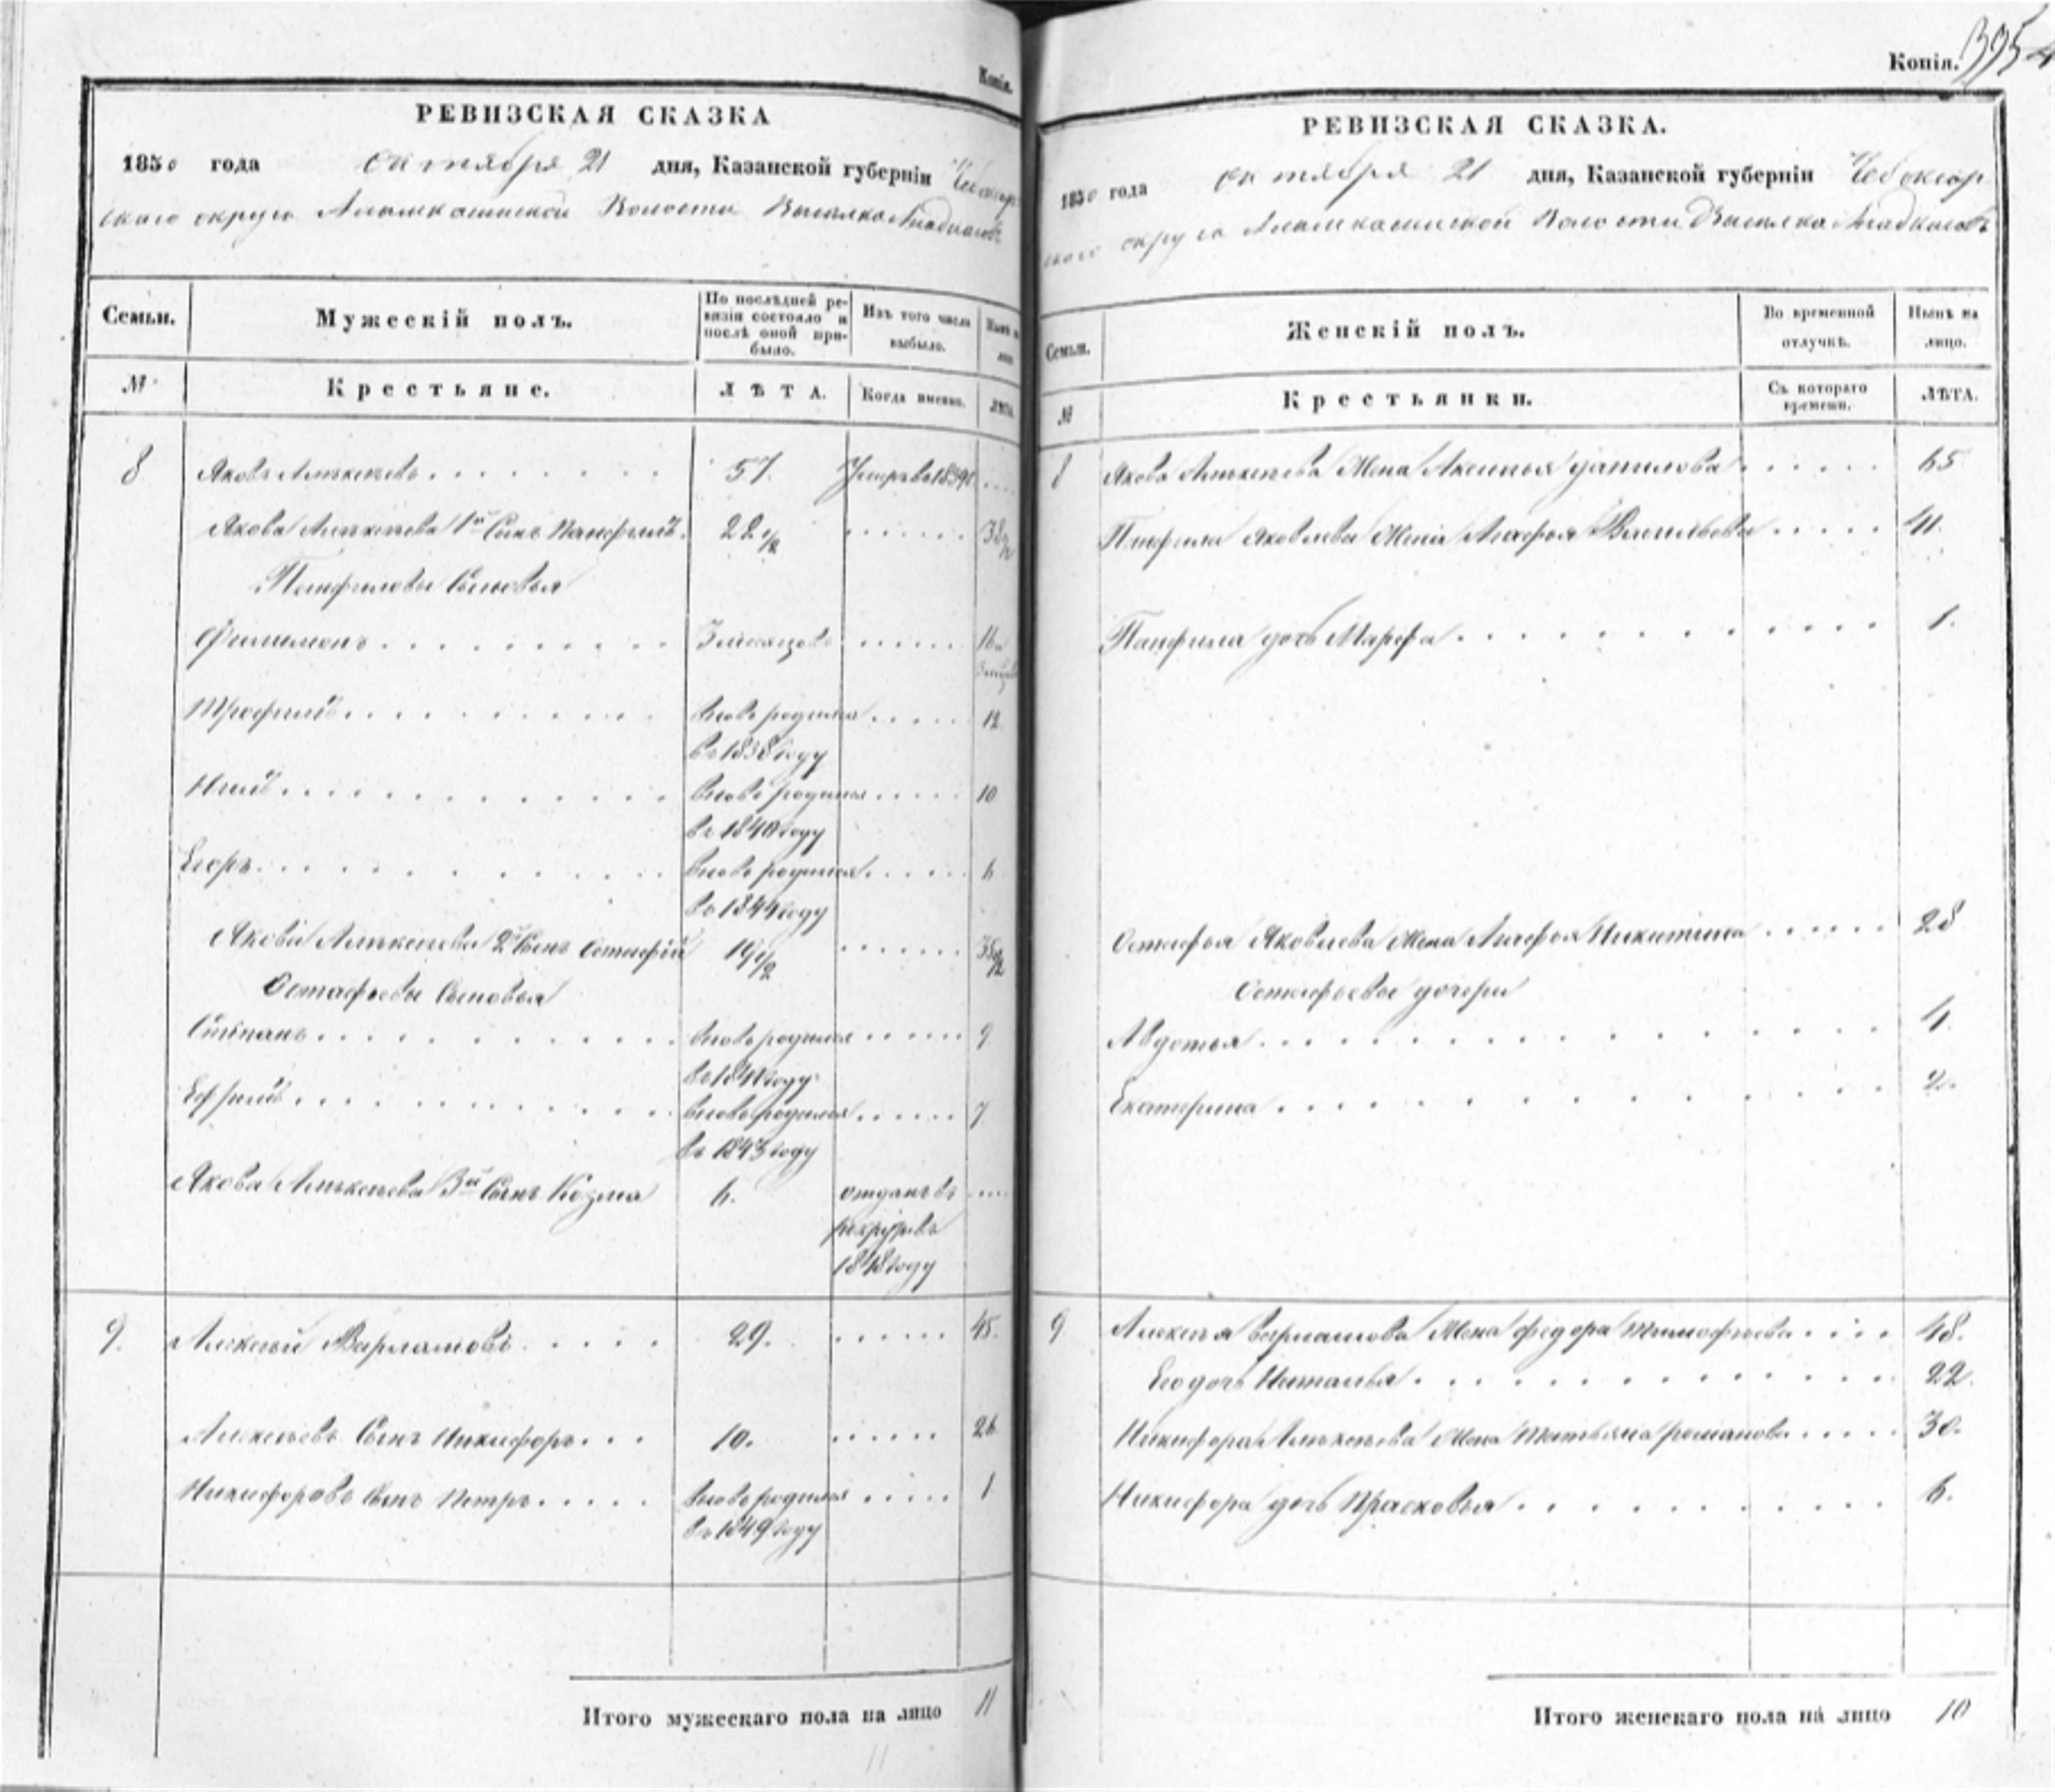 Копія.
РЕВИЗСКАЯ СКАЗКА
1850 года октября 21 дня, Казанской губерніи Чебоксар
скаго округа Волости Выселка
Семьи.
Мужескій полъ.
По послѣдней ре-
визіи состояло и
послѣ оной при-
было.
Изъ того числа
выбыло.
Нынѣ на
лицо.
№
Крестьяне.
ЛѢТА.
Когда именно.
ЛѢТА.
8 Яковъ Алексѣевъ 57 Умеръ въ 1839 г.
Якова Алексѣева 1й Сынъ Панфилъ 22 1/2 38 1/2
Панфиловы Сыновья
Филимонъ 16
Трофимъ вновь родился 12
въ 1838 году
вновь родился 10
въ 1840 году
Егоръ вновь родился 6
въ 1844 году
Якова Алексѣева 2й Сынъ Остафій 19 1/2 35 1/2
Остафьевы Сыновья
Степанъ вновь родился 9
въ 1841 году
Ефримъ вновь родился 7
въ 1843 году
Якова Алексѣева 3й Сынъ Козма 6. отданъ въ
рекруты въ
1848 году
9. Алексѣй Варламовъ 29. 45.
Алексѣевъ Сынъ Никифоръ 10. 26
Никифоровъ Сынъ Петръ вновь родился 1
въ 1849 году
Итого мужескаго пола на лицо 11
11
Копія. 395
РЕВИЗСКАЯ СКАЗКА.
1850 года октября 21 дня, Казанской губерніи Чебоксар
скаго округа Волости Выселка
Семьи.
Женскій полъ.
Во временной
отлучкѣ.
Нынѣ на
лицо.
№
Крестьянки.
Съ котораго
времени.
ЛѢТА.
8 Якова Алексѣева Жена Аксинья Данилова 65
Панфила Яковлева Жена Агафья Васильева 41.
Панфила дочь Марфа 1.
Остафья Яковлева Жена Агафья Никитина 28
Остафьевы дочери
Авдотья 4.
Екатерина 2.
9 Алексѣя Варламова Жена Федора Тимофѣева 48.
Его дочь Наталья 22.
Никифора Алексѣева Жена Татьяна Романова 30.
Никифора дочь Прасковья 6.
Итого женскаго пола на лицо 10